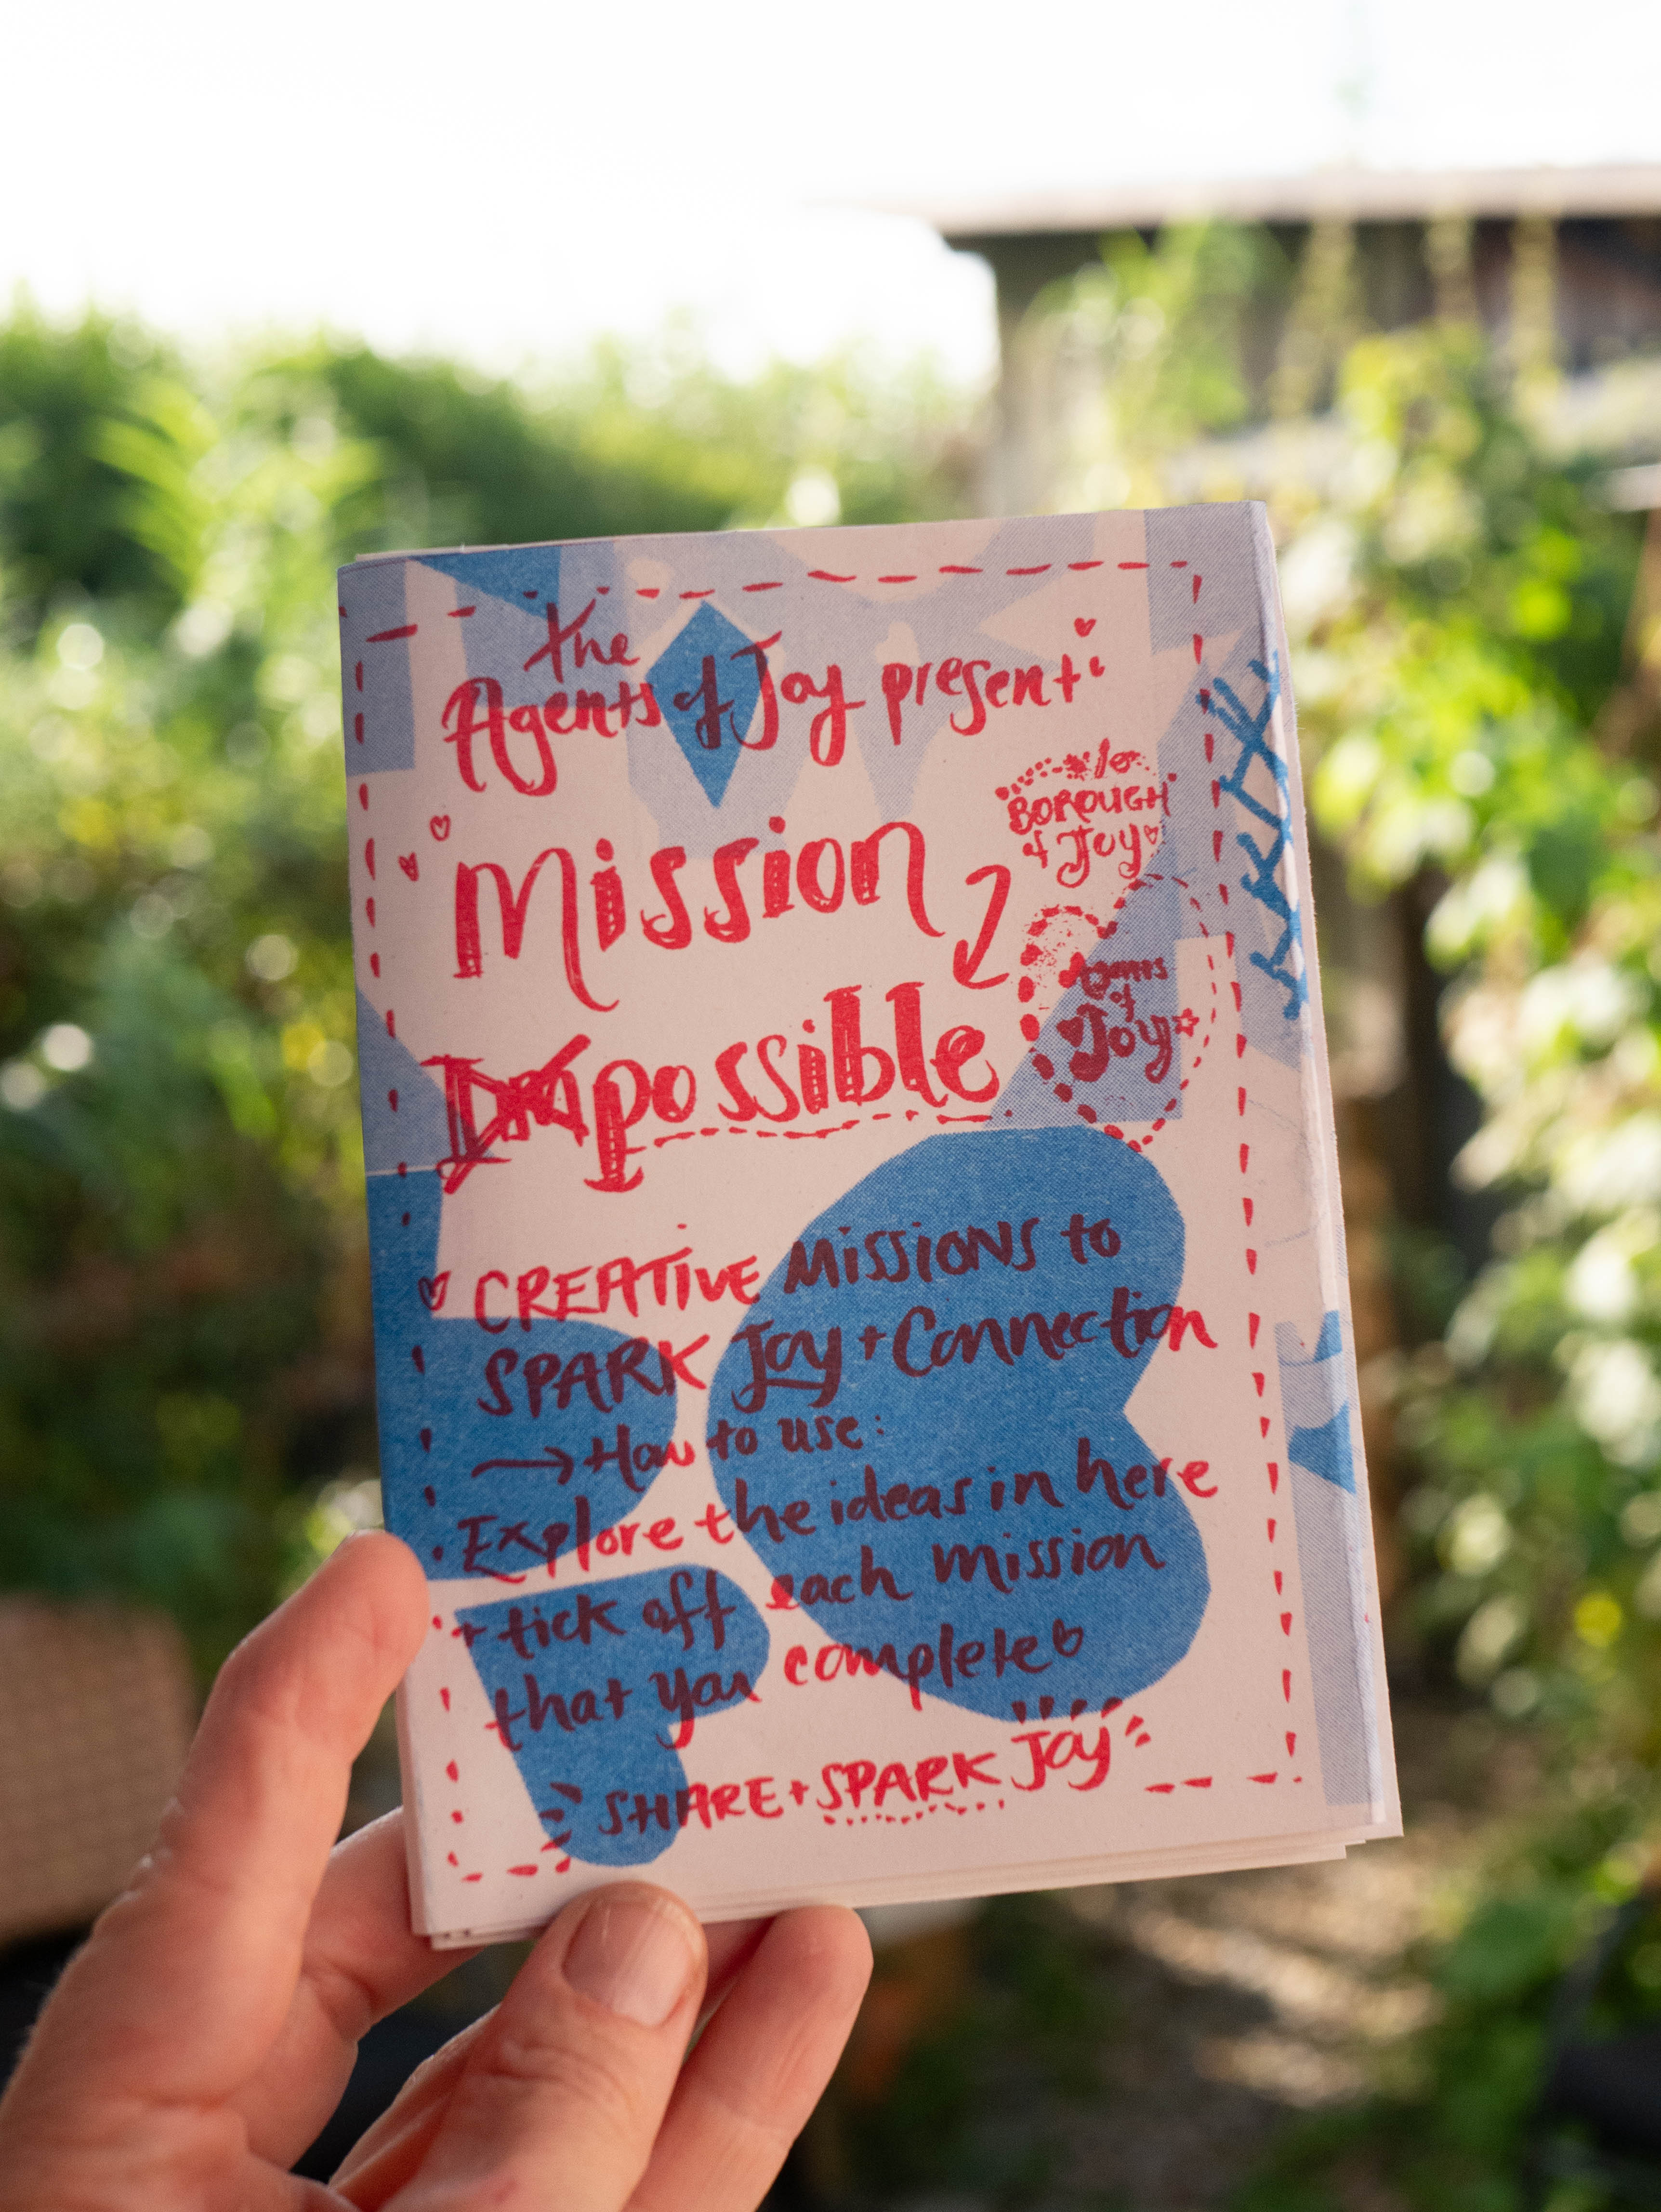 The
Agents of Joy present:
BOROUGH
of Joy
Mission
Impossible
of
Joy
CREATIVE MISSIONS to
SPARK Joy + Connection
→ How to use:
Explore the ideas in here
+ tick off each mission
that you complete
SHARE + SPARK Joy